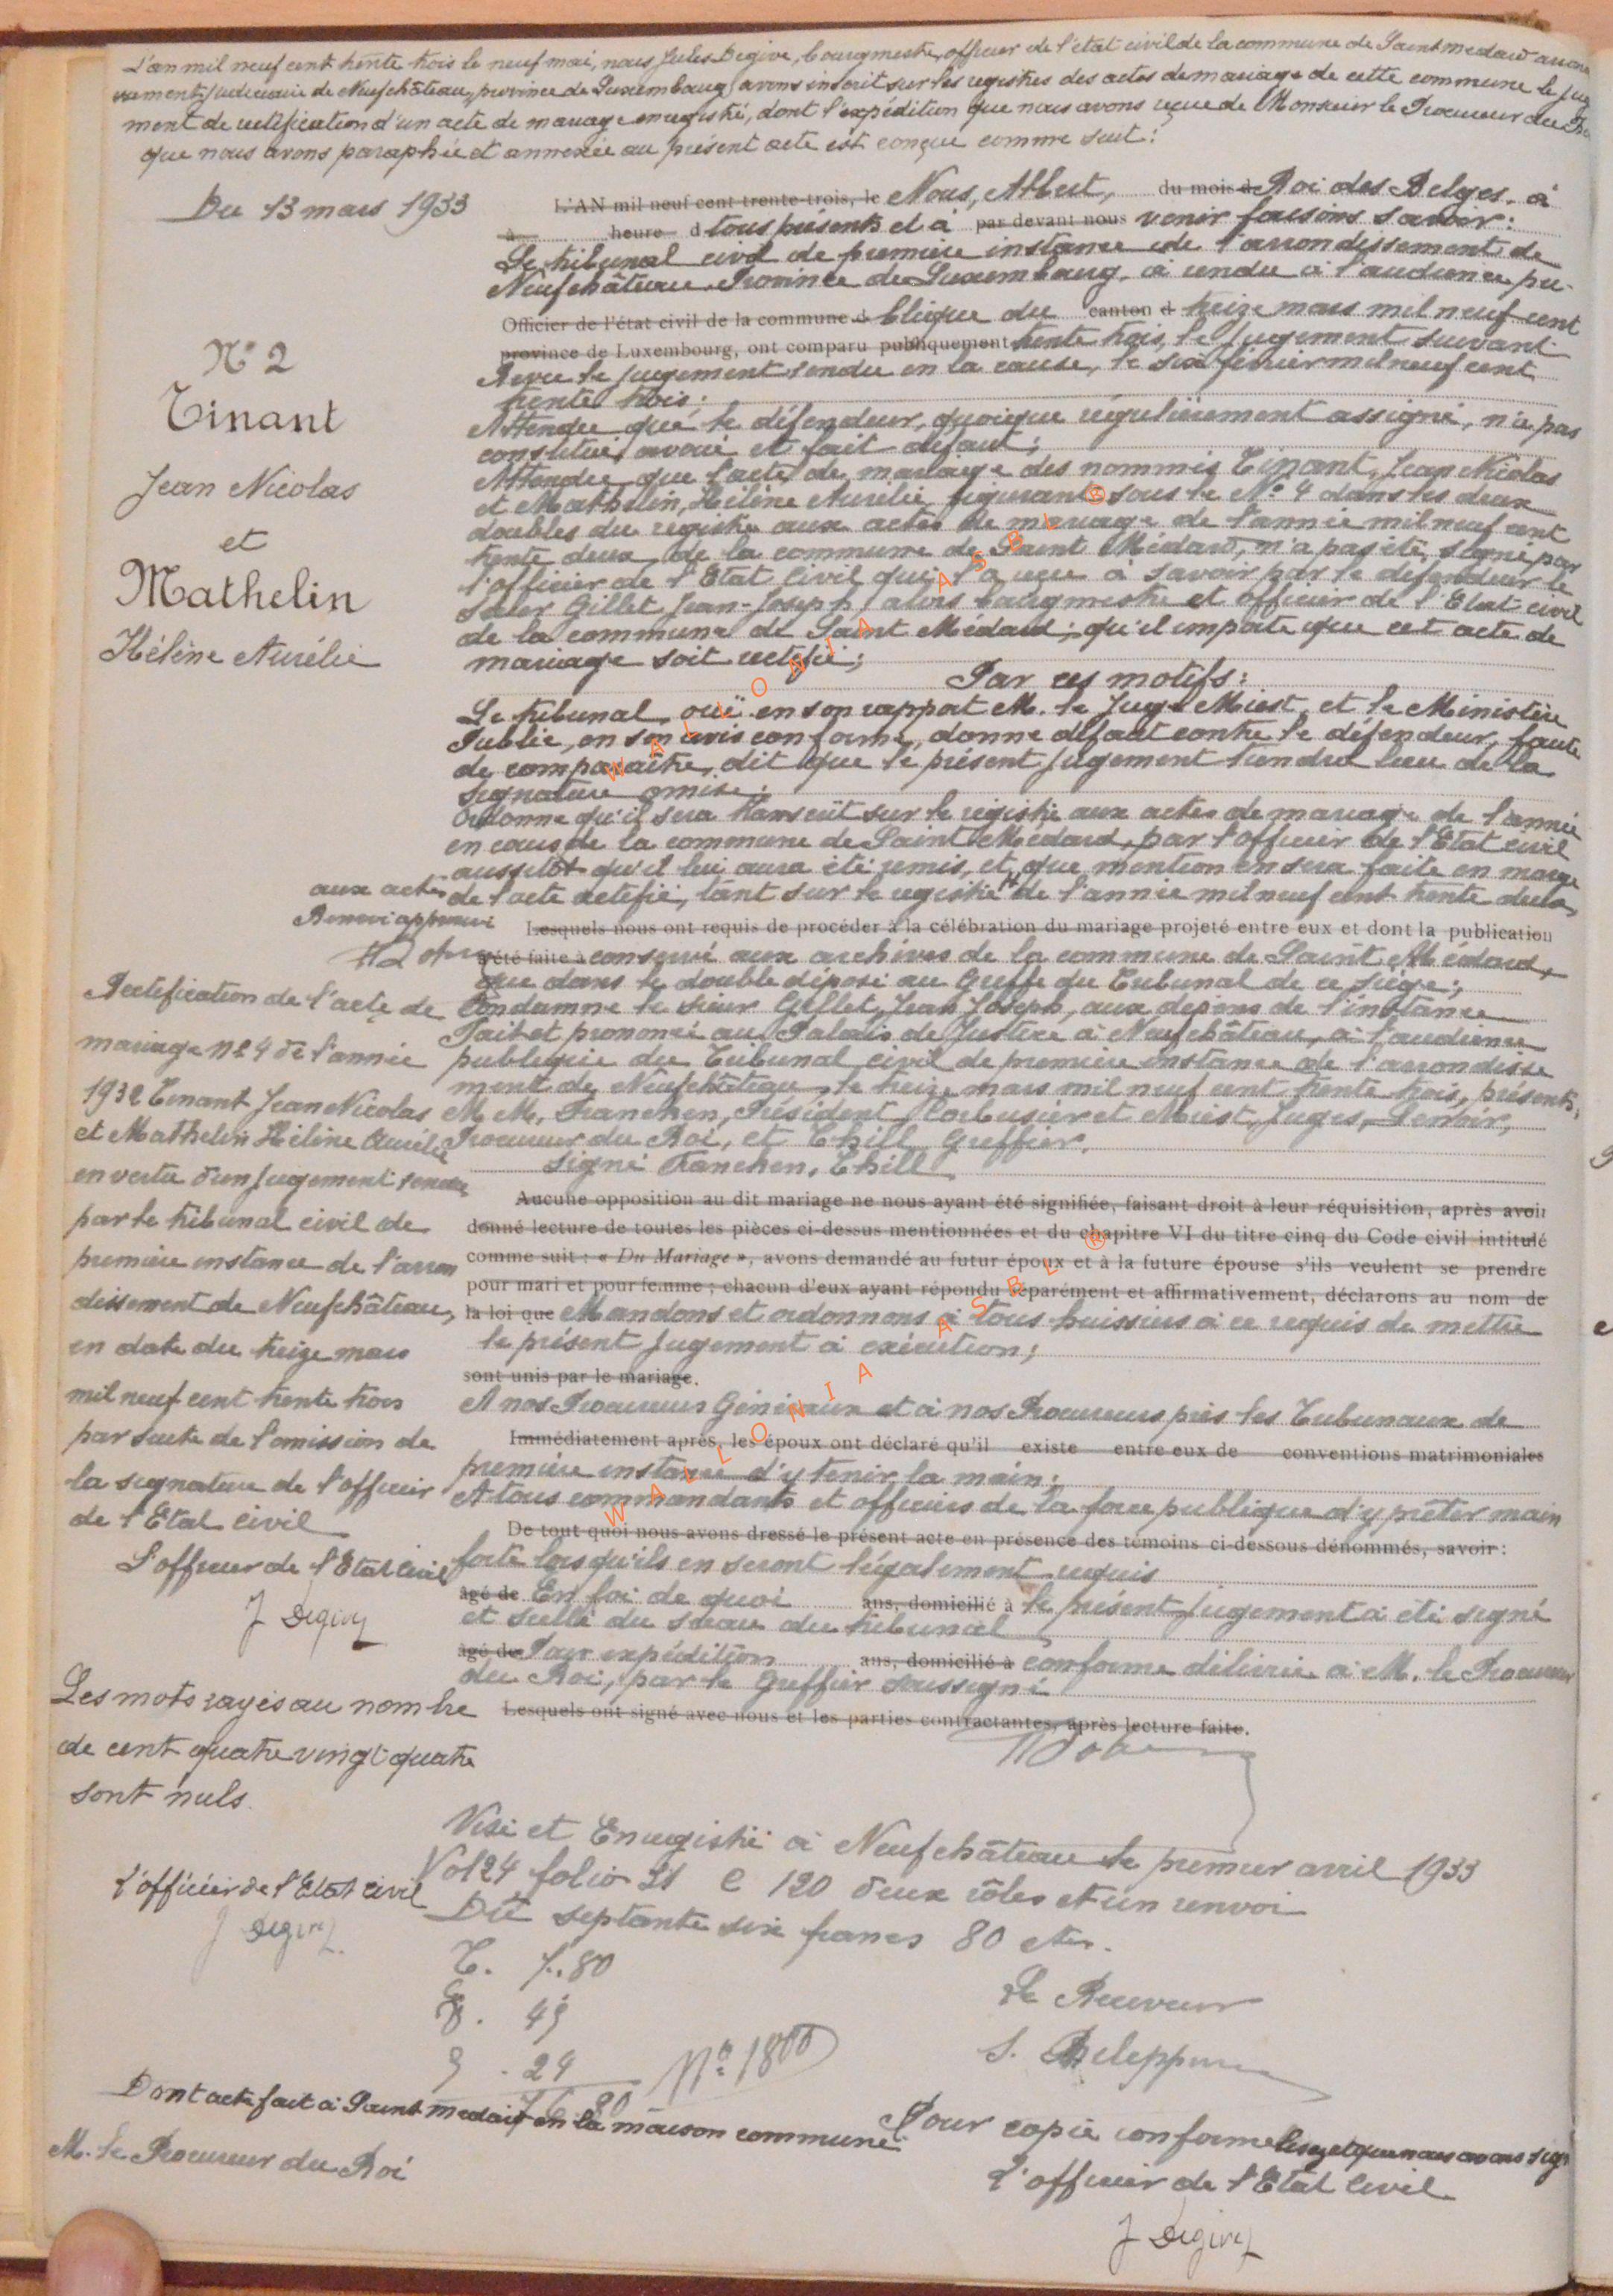 L'an mil neuf cent trente trois le neuf mai, nous Jules Degive, bourgmestre, officier de l'état civil de la commune de Saint medard
judiciaire de Neufchâteau, province de Luxembourg, avons inscrit sur les registres des actes de mariage de cette commune le juge
ment de rectification d'un acte de mariage enregistré, dont l'expédition que nous avons reçue de Monsieur le Procureur du
que nous avons paraphée et annexée au présent acte est conçue comme suit :
Du 13 mars 1933
L'AN mil neuf cent trente-trois, le Nous, Albert, du mois d Roi des Belges, à
à heure d tous présents et à par devant nous venir faisons savoir :
Le tribunal civil de première instance de l'arrondissement de
Neufchâteau, Province de Luxembourg, a rendu à l'audience pu-
Officier de l'état civil de la commune d blique du canton d treize mars mil neuf cent
province de Luxembourg, ont comparu publiquement trente trois, le jugement suivant
Revu le jugement rendu en la cause, le six février mil neuf cent
trente trois ;
Attendu que le défendeur, quoique régulièrement assigné, n'a pas
constitué avoué et fait défaut ;
Attendu que l'acte de mariage des nommés Tinant, Jean Nicolas
et Mathelin, Hélène Aurélie, figurant sous le N° 4 dans les deux
doubles du registre aux actes de mariage de l'année mil neuf cent
trente deux, de la commune de Saint Médard, n'a pas été signé par
l'officier de l'Etat Civil qui l'a reçu à savoir par le défendeur le
sieur Gillet Jean-Joseph, alors bourgmestre et officier de l'Etat civil
de la commune de Saint Médard ; qu'il importe que cet acte de
mariage soit rectifié ;
Par ces motifs :
Le tribunal, ouï en son rapport M. le Juge Miest, et le Ministère
Public, en son avis conforme, donne défaut contre le défendeur, faute
de comparaître, dit que le présent jugement tiendra lieu de la
signature omise ;
Ordonne qu'il sera transcrit sur le registre aux actes de mariage de l'année
en cours de la commune de Saint Médard, par l'officier de l'Etat civil
aussitôt qu'il lui aura été remis, et que mention en sera faite en marge
de l'acte rectifié, tant sur le registre de l'année mil neuf cent trente deux,
Lesquels nous ont requis de procéder à la célébration du mariage projeté entre eux et dont la publication
a été faite à conservé aux archives de la commune de Saint Médard,
que dans le double déposé au Greffe du Tribunal de ce siège ;
Condamne le sieur Gillet, Jean Joseph, aux dépens de l'instance
Fait et prononcé au Palais de Justice à Neufchâteau, à l'audience
publique du Tribunal civil de première instance de l'arrondisse
ment de Neufchâteau, le treize mars mil neuf cent trente trois, présents,
M M. Franchen, Président, Corbusier et Miest, Juges, Lenoir,
Procureur du Roi, et Thill, Greffier.
Signé Franchen, Thill
Aucune opposition au dit mariage ne nous ayant été signifiée, faisant droit à leur réquisition, après avoir
donné lecture de toutes les pièces ci-dessus mentionnées et du chapitre VI du titre cinq du Code civil intitulé
comme suit : « Du Mariage », avons demandé au futur époux et à la future épouse s'ils veulent se prendre
pour mari et pour femme ; chacun d'eux ayant répondu séparément et affirmativement, déclarons au nom de
la loi que Mandons et ordonnons à tous huissiers à ce requis de mettre
le présent jugement à exécution ;
sont unis par le mariage.
A nos Procureurs Généraux et à nos Procureurs près les Tribunaux de
Immédiatement après, les époux ont déclaré qu'il existe entre eux de conventions matrimoniales
première instance d'y tenir la main ;
A tous commandants et officiers de la force publique d'y prêter main
De tout quoi nous avons dressé le présent acte en présence des témoins ci-dessous dénommés, savoir :
forte lorsqu'ils en seront légalement requis
âgé de En foi de quoi ans, domicilié à le présent jugement a été signé
et scellé du sceau du tribunal
âgé de Pour expédition ans, domicilié à conforme délivrée à M. le Procureur
du Roi, par le Greffier soussigné
Lesquels ont signé avec nous et les parties contractantes, après lecture faite.
N° 2
Tinant
Jean Nicolas
et
Mathelin
Hélène Aurélie
aux actes
Renvoi approuvé
Rectification de l'acte de
mariage n° 4 de l'année
1932 Tinant Jean Nicolas
et Mathelin Hélène Aurélie
en vertu d'un jugement rendu
par le tribunal civil de
première instance de l'arron
dissement de Neufchâteau,
en date du treize mars
mil neuf cent trente trois
par suite de l'omission de
la signature de l'officier
de l'Etat civil
L'officier de l'Etat Civil
J Degive
Les mots rayés au nombre
de cent quatre vingt quatre
sont nuls.
L'officier de l'Etat civil
J Degive
Visé et Enregistré à Neufchâteau le premier avril 1933
Vol 24 folio 21 C 120 deux rôles et un renvoi
Dû septante six francs 80 cts.
T. 7.80
45
24
76.80
N° 1800
Le Receveur
Dont acte fait à Saint medard en la maison commune
Pour copie conforme
M. le Procureur du Roi
L'officier de l'Etat Civil
J Degive
WALLONIA ASBL ®
WALLONIA ASBL ®